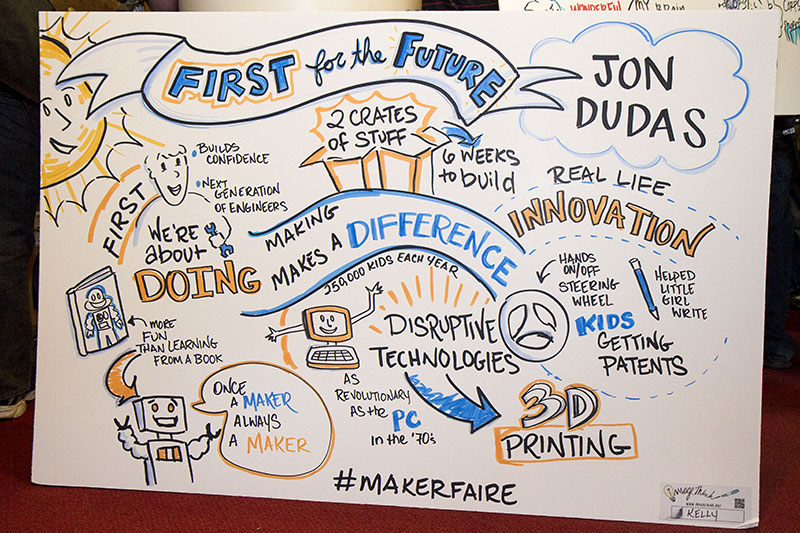 WONDERFUL
MY BRAIN
FIRST for the FUTURE
JON
DUDAS
BUILDS
CONFIDENCE
NEXT
GENERATION
OF ENGINEERS
2 CRATES
OF STUFF
6 WEEKS
to build
FIRST
WE'RE
about
DOING
MAKING
MAKES A DIFFERENCE
250,000 KIDS EACH YEAR
REAL LIFE
INNOVATION
HANDS
ON/OFF
STEERING
WHEEL
HELPED
LITTLE
GIRL
WRITE
KIDS
GETTING
PATENTS
MORE
FUN
THAN LEARNING
FROM A BOOK
DISRUPTIVE
TECHNOLOGIES
AS
REVOLUTIONARY
AS the
PC
in the '70s
3D
PRINTING
ONCE
A MAKER
ALWAYS
A MAKER
#MAKERFAIRE
ImageThink
KELLY